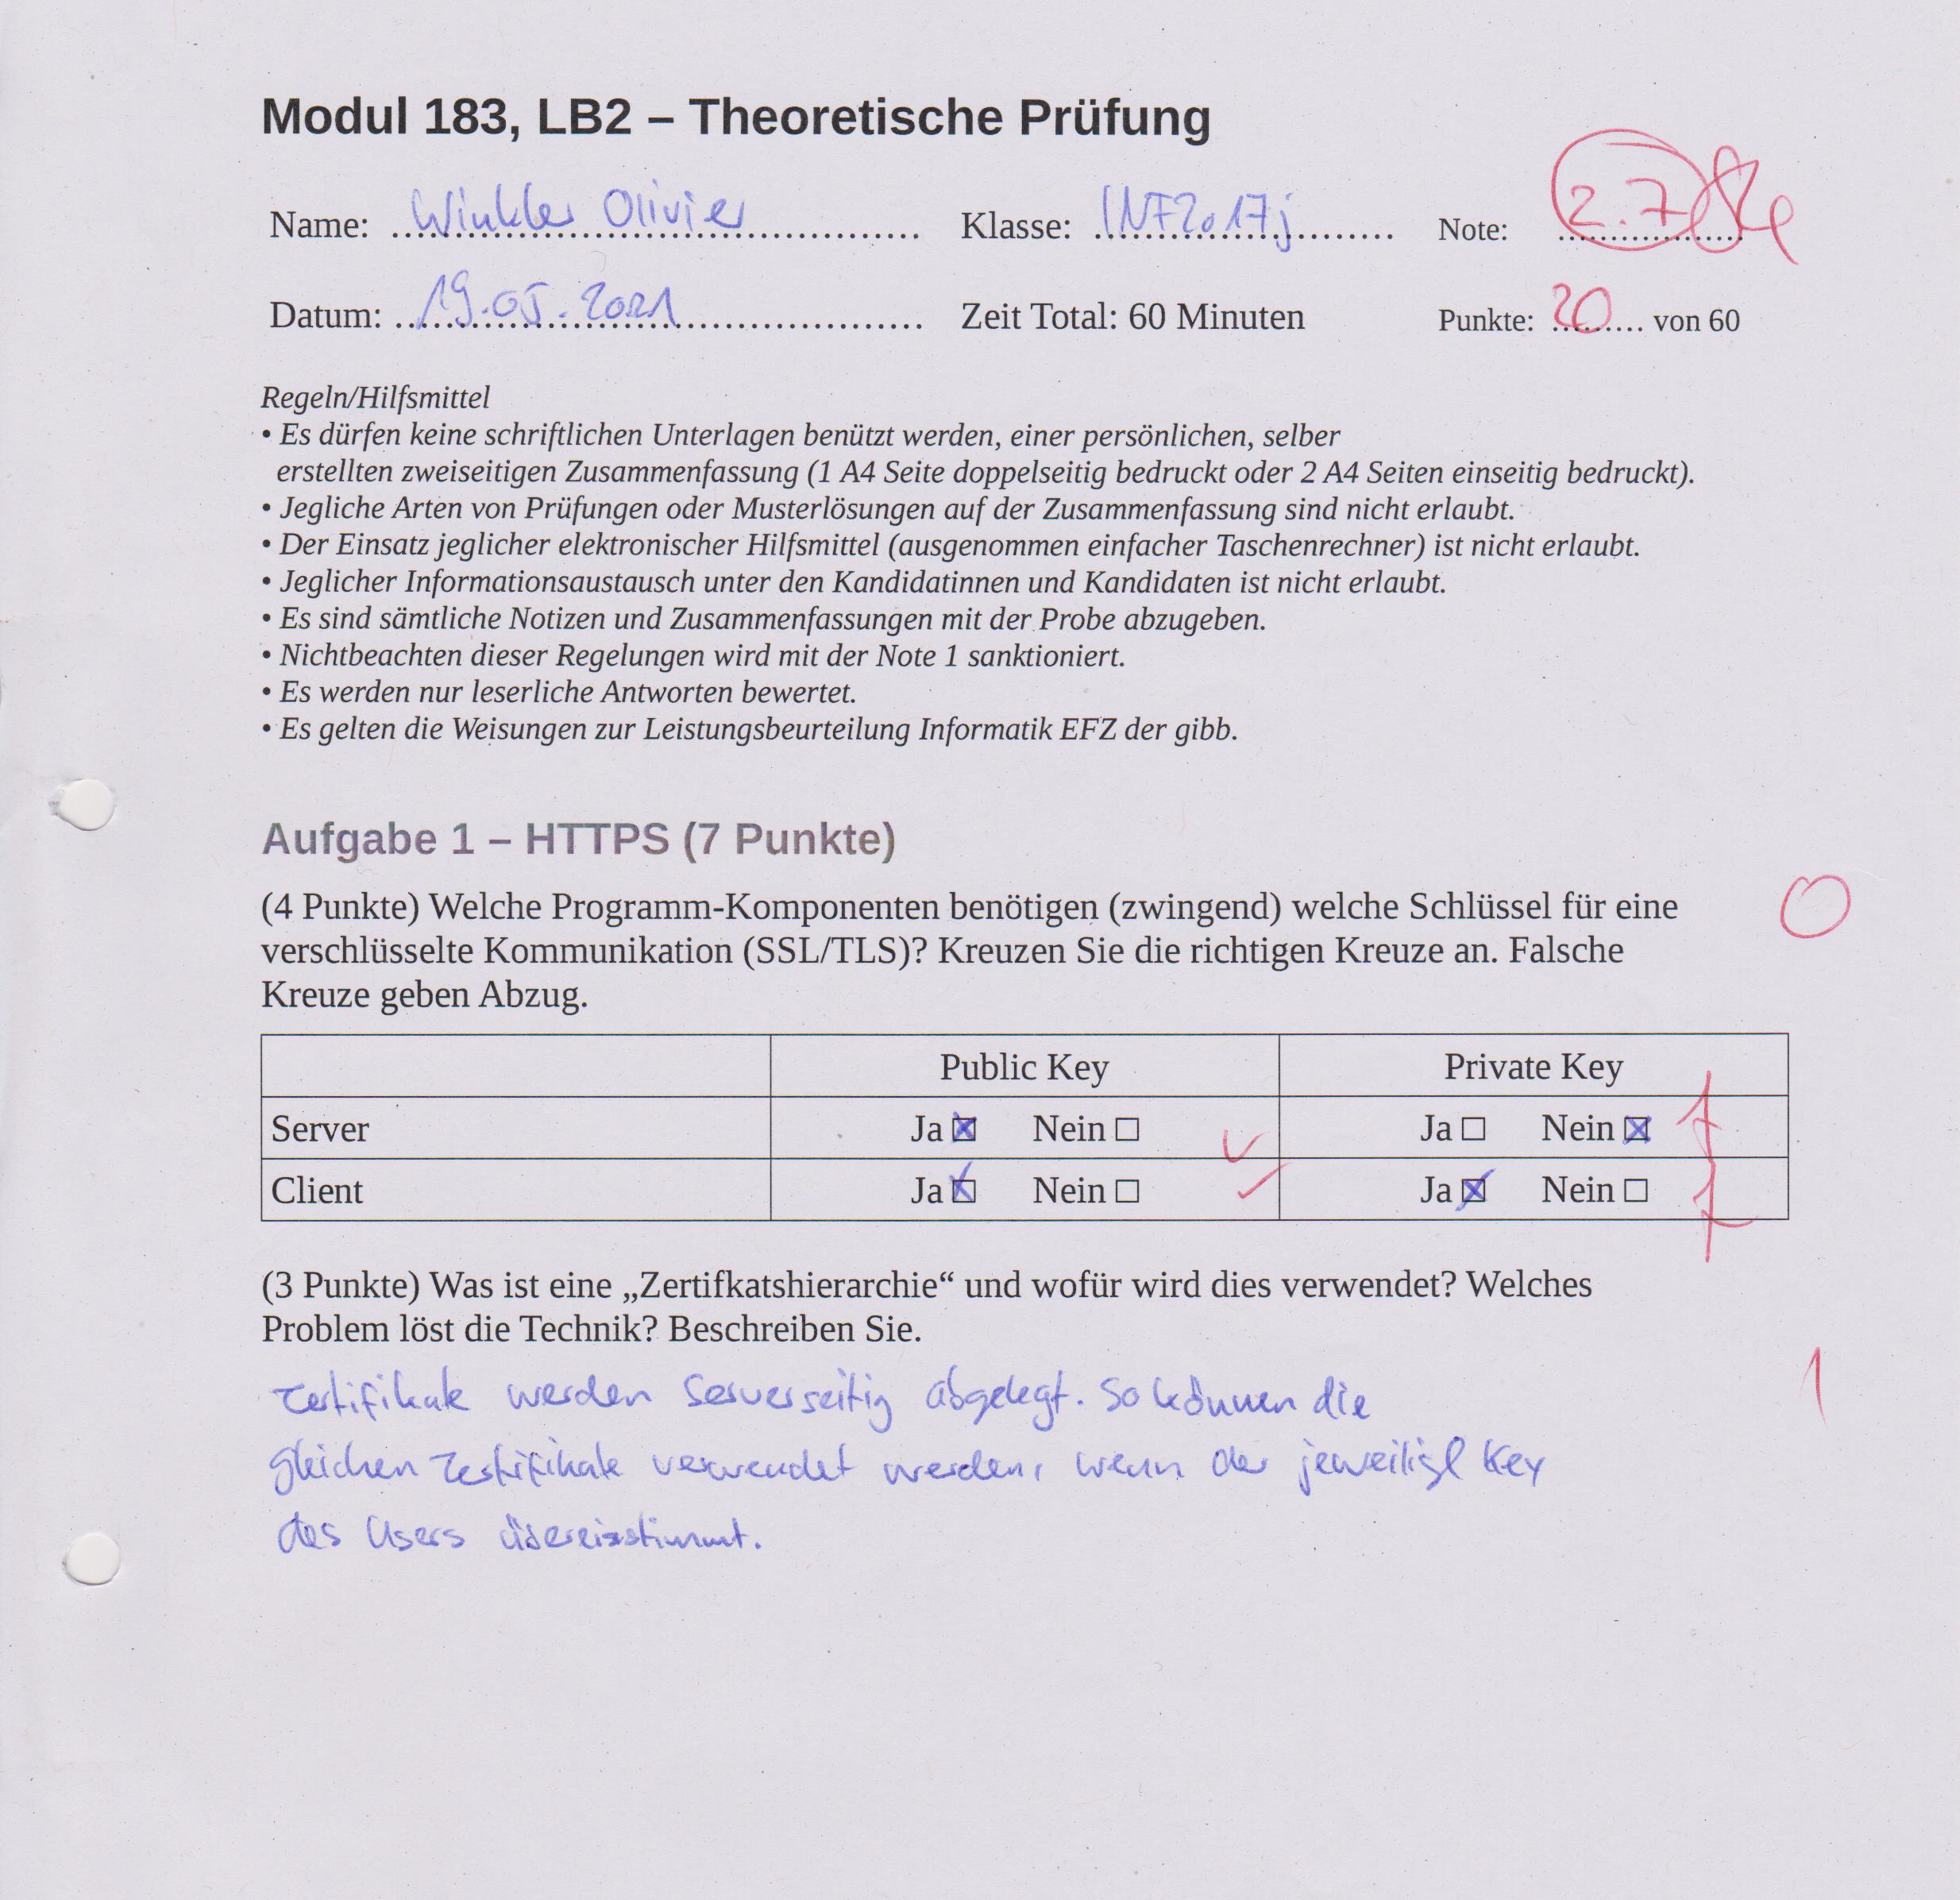 Modul 183, LB2 – Theoretische Prüfung
Name: Winkler Olivier Klasse: INF2017j Note: 2.7
Datum: 19.05.2021 Zeit Total: 60 Minuten Punkte: 20 von 60
Regeln/Hilfsmittel
• Es dürfen keine schriftlichen Unterlagen benützt werden, einer persönlichen, selber
erstellten zweiseitigen Zusammenfassung (1 A4 Seite doppelseitig bedruckt oder 2 A4 Seiten einseitig bedruckt).
• Jegliche Arten von Prüfungen oder Musterlösungen auf der Zusammenfassung sind nicht erlaubt.
• Der Einsatz jeglicher elektronischer Hilfsmittel (ausgenommen einfacher Taschenrechner) ist nicht erlaubt.
• Jeglicher Informationsaustausch unter den Kandidatinnen und Kandidaten ist nicht erlaubt.
• Es sind sämtliche Notizen und Zusammenfassungen mit der Probe abzugeben.
• Nichtbeachten dieser Regelungen wird mit der Note 1 sanktioniert.
• Es werden nur leserliche Antworten bewertet.
• Es gelten die Weisungen zur Leistungsbeurteilung Informatik EFZ der gibb.
Aufgabe 1 – HTTPS (7 Punkte)
(4 Punkte) Welche Programm-Komponenten benötigen (zwingend) welche Schlüssel für eine 0
verschlüsselte Kommunikation (SSL/TLS)? Kreuzen Sie die richtigen Kreuze an. Falsche
Kreuze geben Abzug.
Public Key Private Key
Server Ja ☒ Nein ☐ Ja ☐ Nein ☒
Client Ja ☒ Nein ☐ Ja ☒ Nein ☐
(3 Punkte) Was ist eine „Zertifkatshierarchie“ und wofür wird dies verwendet? Welches
Problem löst die Technik? Beschreiben Sie.
Zertifikate werden Serverseitig abgelegt. So können die 1
gleichen Zertifikate verwendet werden, wenn der jeweilige Key
des Users übereinstimmt.